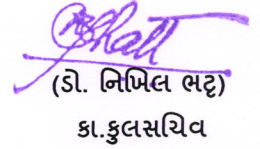 (ડો. નિખિલ ભટ્ટ)
કા.કુલસચિવ